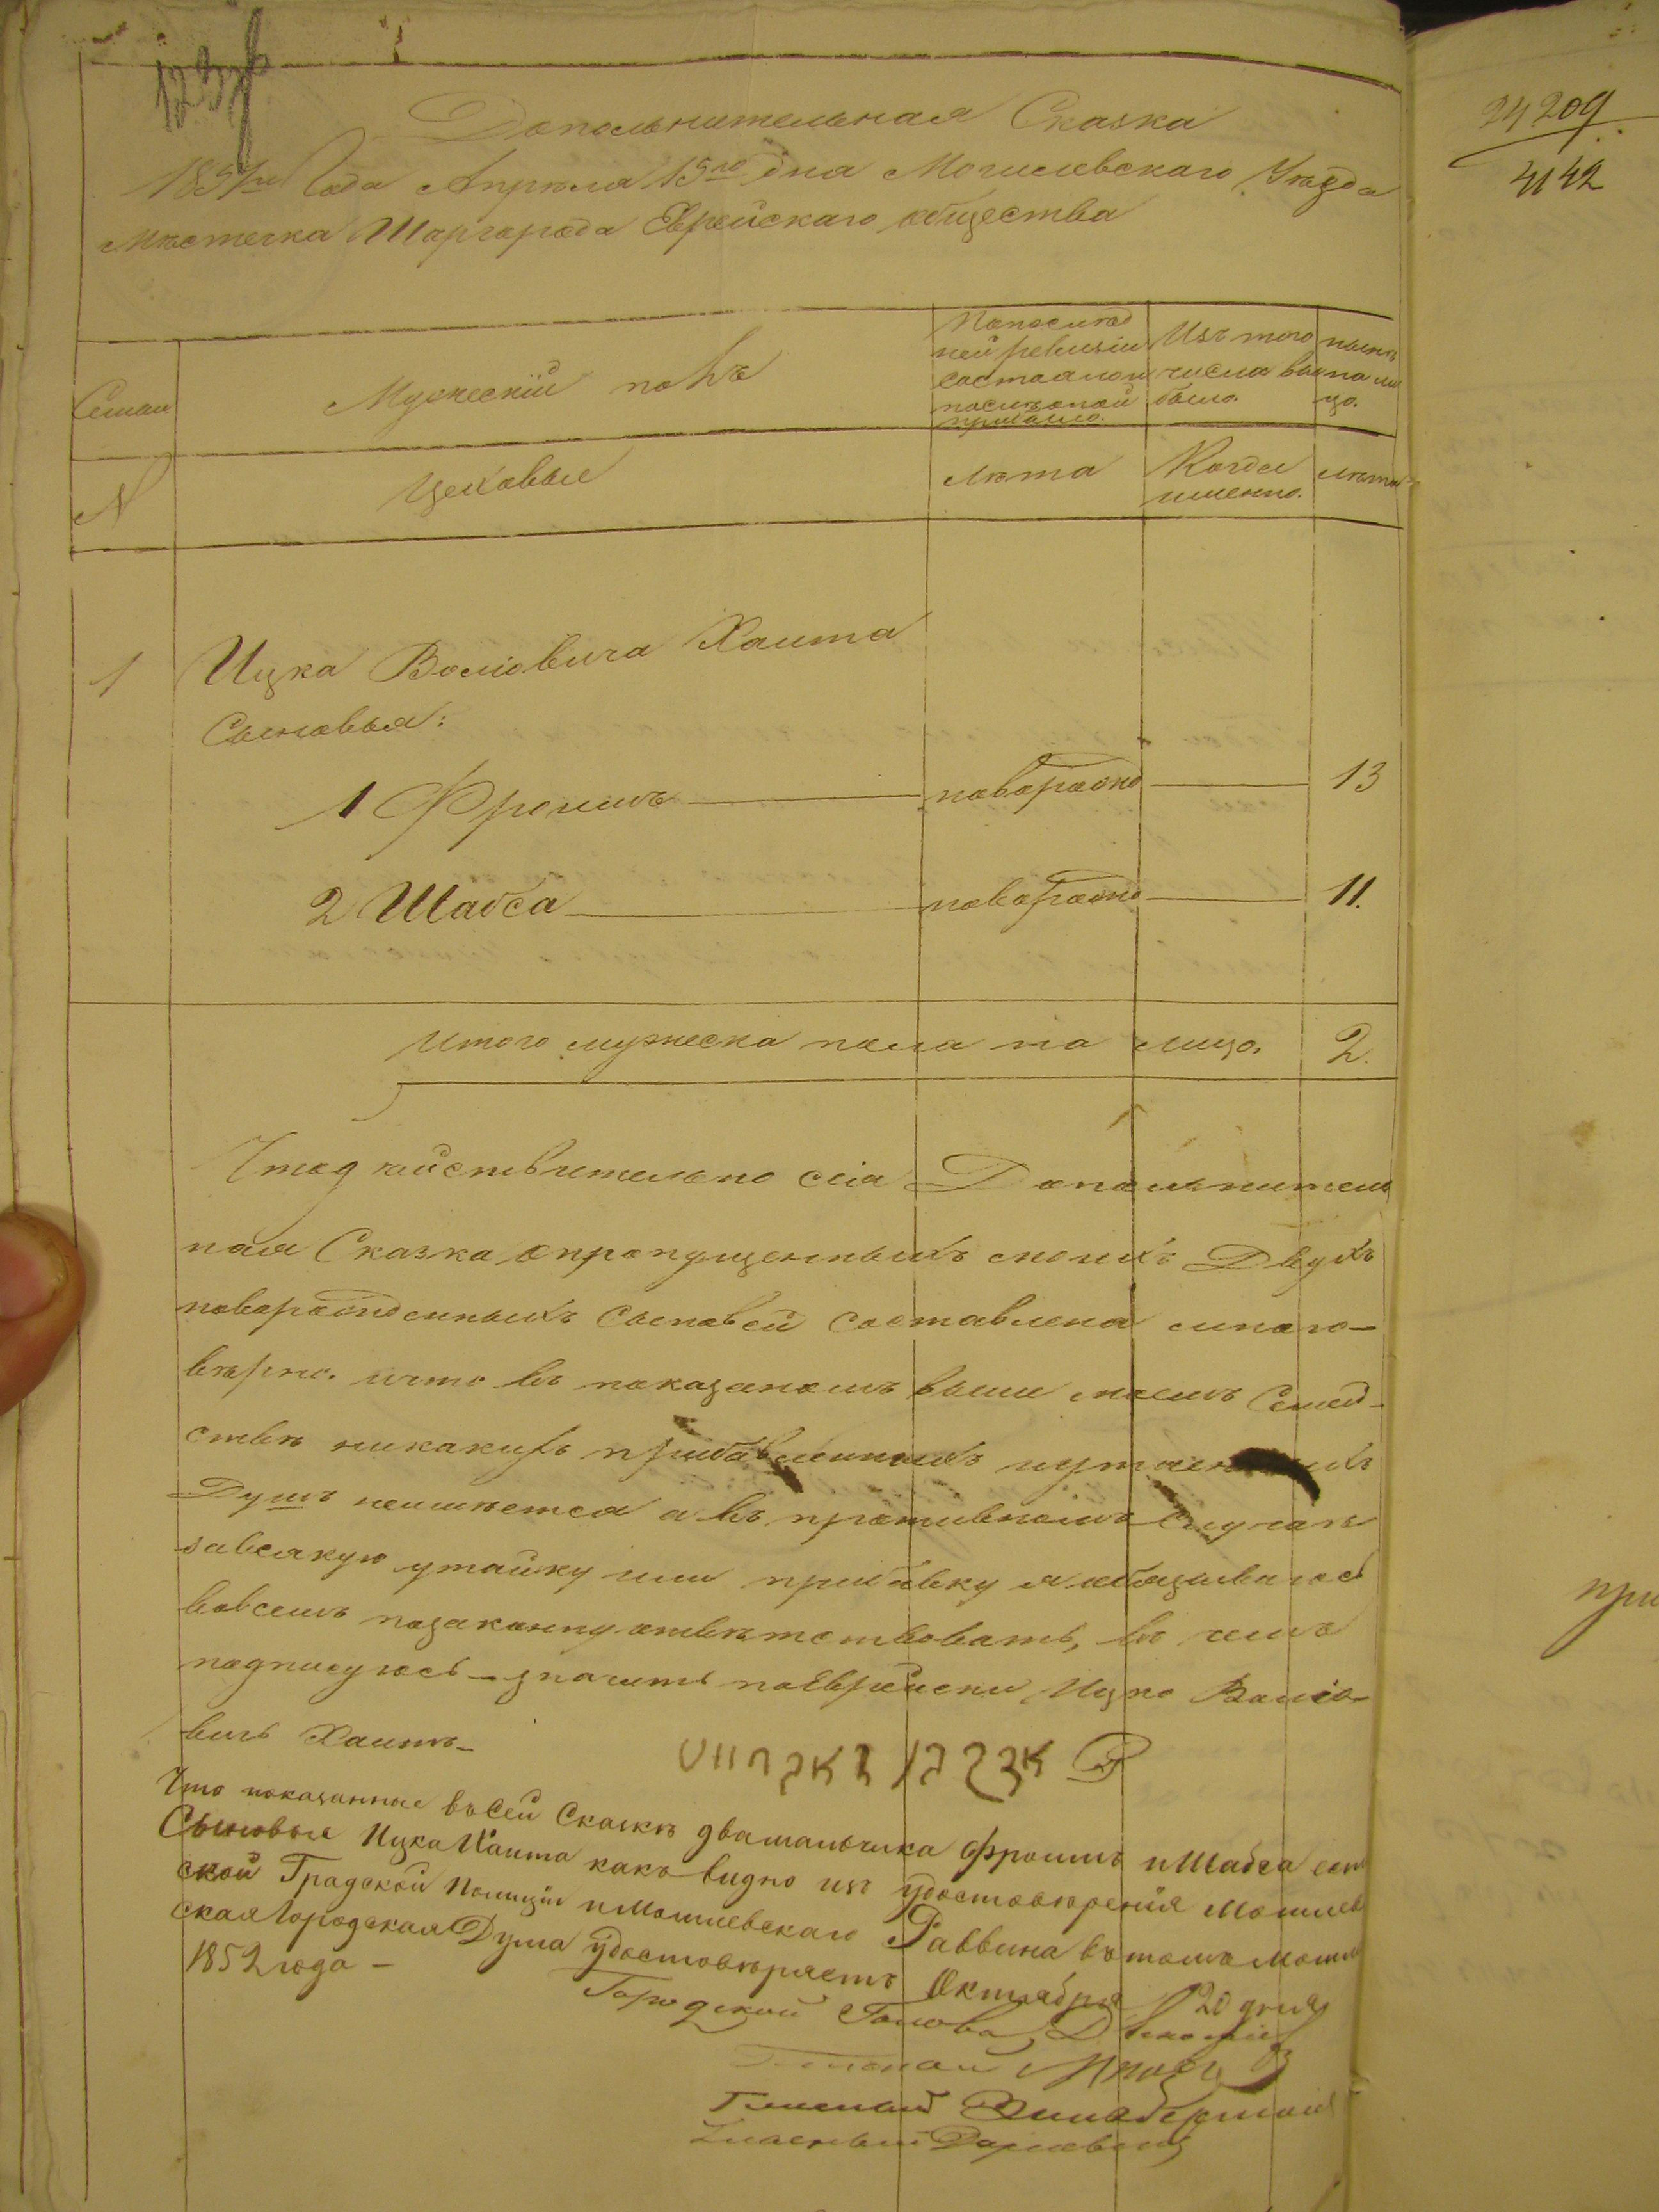 Дополнительная Сказка
1851го Года Апреля 15го дня Могилевскаго Уезда
Местечка Шаргорода Еврейскаго общества
24209
4142
Семьи
Мужескiй полъ
Попослед
ней ревизiи
состояло и
после оной
прибыло.
Изъ того
числа вы
было.
ныне
на ли
цо.
N
Цеховые
лета
Когда
именно.
лета
1 Ицка Волiовича Хаита
Сыновья:
1 Фроимъ новорожд 13
2 Шабса новорожд 11.
Итого мужеска пола на лицо. 2.
Что действительно сiя Дополнитель
ная Сказка опропущенныхъ моихъ Двухъ
новорожденныхъ Сыновей составлена мною
верно. ичто въ показаномъ выше моемъ Семей-
стве никакихъ прибавленныхъ
Душъ неимеется а въ противномъ случае
завсякую утайку или прибавку я обязываюсь
вовсемъ позаконну ответствовать, въ чемъ
подписуюсь - значить поЕврейски Ицко Волiо-
вичъ Хаитъ -
Что показанные въ сей Сказке два мальчика Фроимъ и Шабса есть
Сыновья Ицка Хаита какъ видно изъ удостоверенiя Могилев
ской Градской Полицiи и Могилевскаго Раввина въ томъ Могилев
ская Городская Дума удостоверяетъ Октября 20 дня
1852 года -
Городской Голова
Гласный
Гласный
Гласный
при